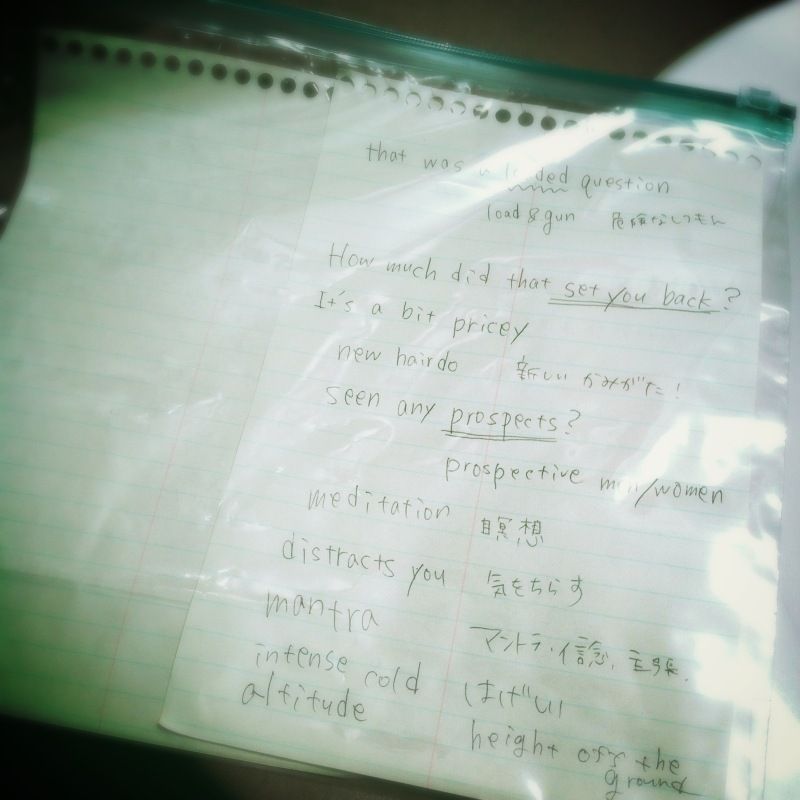 that was a loaded question
load & gun 危険なしつもん
How much did that set you back?
It's a bit pricey
new hairdo 新しい かみがた!
seen any prospects?
prospective men/women
meditation 瞑想
distracts you 気をちらす
mantra マントラ・信念、主張、
intense cold はげしい
altitude height off the
ground